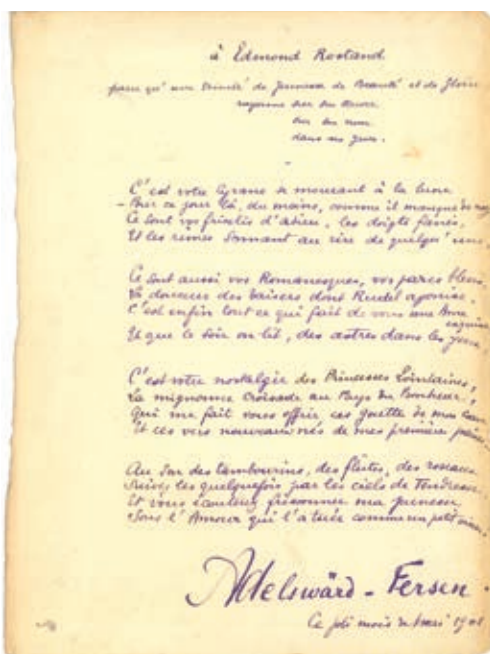 à Edmond Rostand
parce qu'une trinité de Jeunesse de Beauté et de Gloire
rayonne sur son œuvre
sur son nom
dans ses yeux.
C'est votre Cyrano se moquant à la lune
– Pour ce jour là, du moins, comme il manque de
Ce sont vos friselis d'astres, les doigts fanés,
Et les rimes sonnant au rire de quelqu'une,
Ce sont aussi vos Romanesques, vos parcs bleus,
La douceur des baisers dont Rudel agonise,
C'est enfin tout ce qui fait de vous une âme
exquise
Et que le soir on lit, des astres dans les yeux,
C'est votre nostalgie des Princesses Lointaines,
La mignonne Croisade au Pays du Bonheur,
Qui me fait vous offrir ces gouttes de mon cœur
Et ces vers nouveaux nés de mes premières peines.
Au son des tambourins, des flûtes, des roseaux
Suivez les quelquefois par les ciels de Tendresse
Et vous écouterez frissonner ma jeunesse
Sous l'Amour qui l'a tuée comme un petit oiseau.
Adelswärd - Fersen
Ce joli mois de Mai 1901